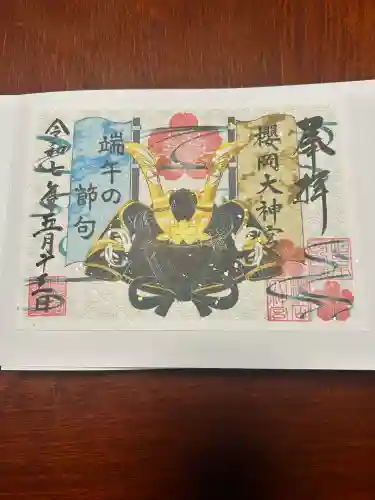 奉拝
櫻岡大神宮
端午の
節句
令和七年五月十三日